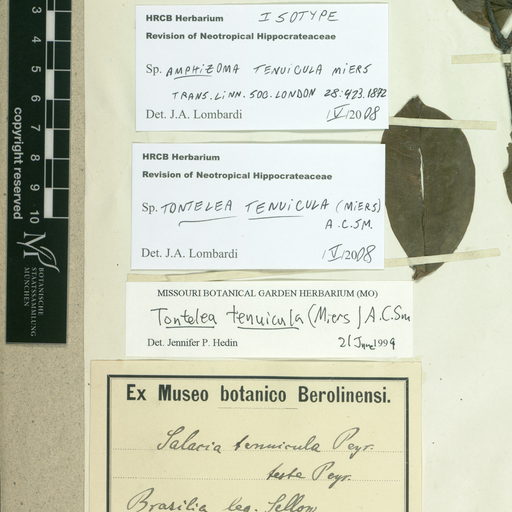 3
4
5
6
7
8
9
10
copyright reserved
BOTANISCHE
STAATSSAMMLUNG
MÜNCHEN
HRCB Herbarium ISOTYPE
Revision of Neotropical Hippocrateaceae
Sp. AMPHIZOMA TENUICULA MIERS
TRANS. LINN. SOC. LONDON 28:423.1872
Det. J.A. Lombardi /V/2008
HRCB Herbarium
Revision of Neotropical Hippocrateaceae
Sp. TONTELEA TENUICULA (MIERS)
A.C.SM.
Det. J.A. Lombardi /V/2008
MISSOURI BOTANICAL GARDEN HERBARIUM (MO)
Tontelea tenuicula (Miers) A.C.Sm
Det. Jennifer P. Hedin 21 June 1999
Ex Museo botanico Berolinensi.
Salacia tenuicula Peyr.
teste Peyr.
Brasilia leg. Sellow